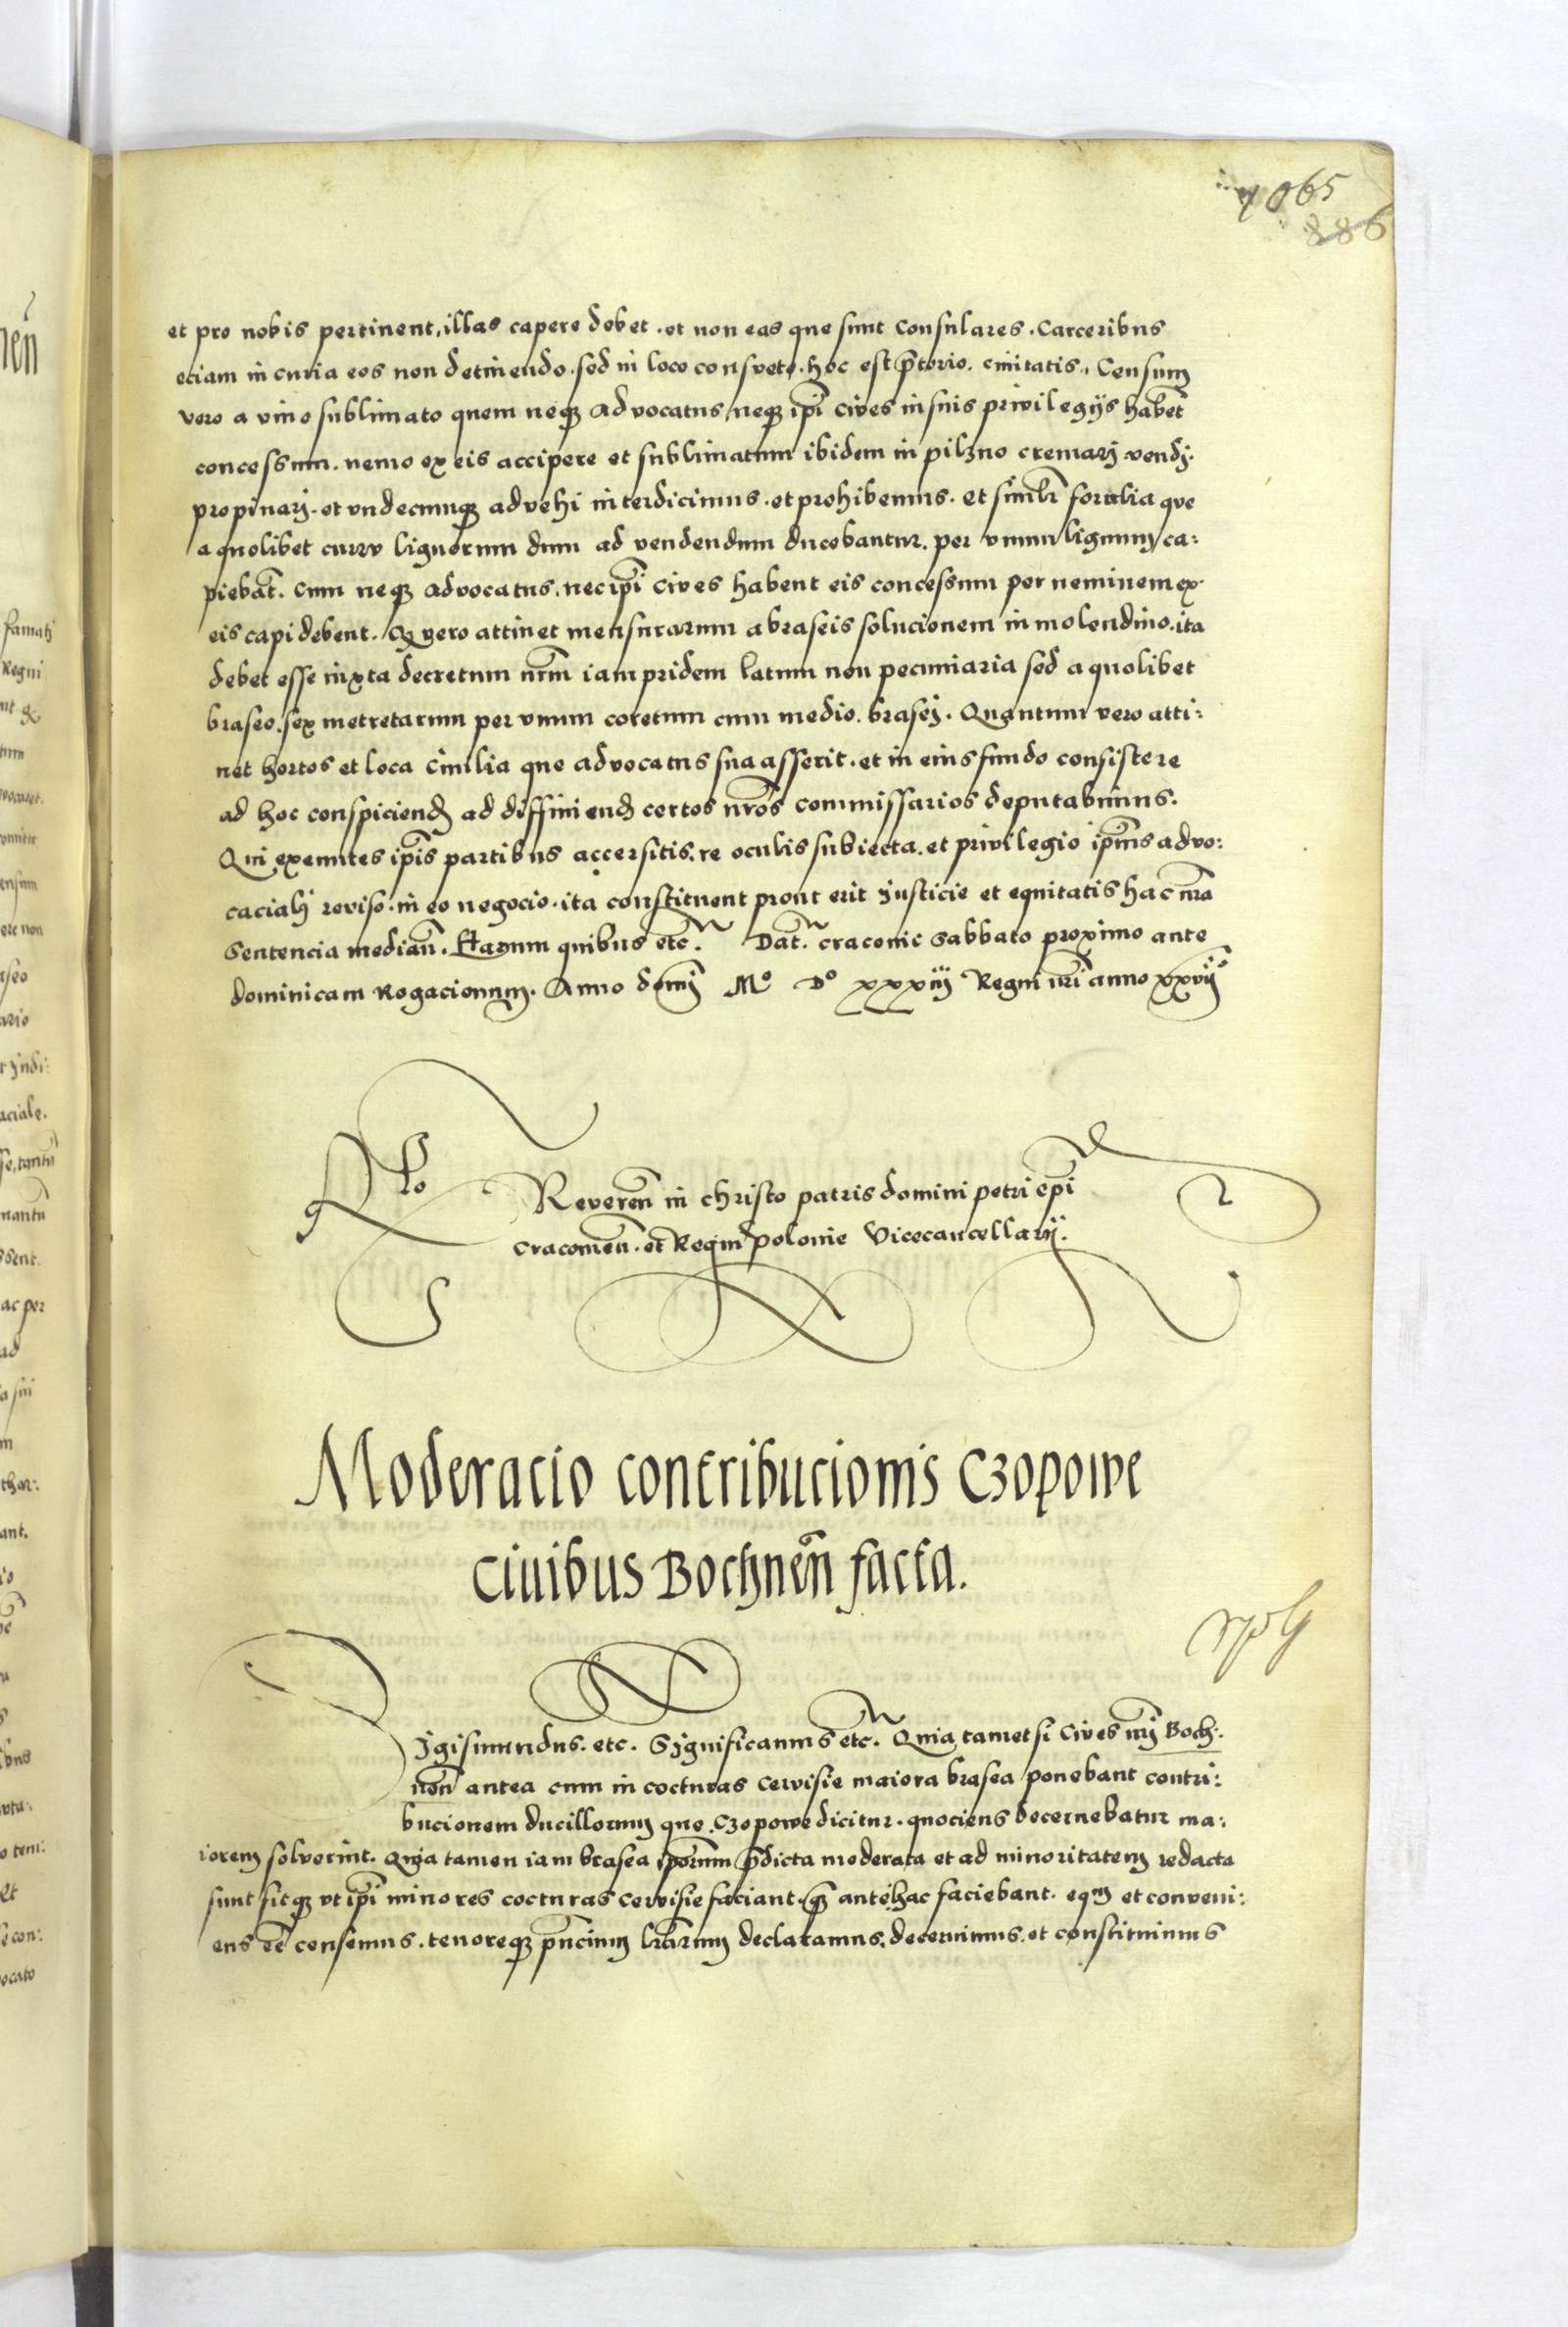 1065
886
et pro nobis pertinent, illas capere debet. et non eas que sunt Consulares. Carceribus
eciam in curia eos non detinendo. sed in loco consveto. hoc est p̃torio. civitatis. Censum
vero a vino sublimato quem neqȝ Advocatus neqȝ ip̃i cives in suis privilegijs habent̃
concessum. nemo ex eis accipere et sublimatum ibidem in pilzno cremarj vendj.
propinarj. et undecumqȝ advehi interdicimus. et prohibemus. et simil̃r foralia que
a quolibet currv lignorum dum ad vendendum ducebantur. per vnum lignum ca:
piebãt. Cum neqȝ advocatus. nec ip̃i cives habent eis concessum per neminem ex
eis capi debent. Qȝ vero attinet mensurarum a braseis solucionem in molendino. ita
debet esse iuxta decretum nr̃m iampridem latum non pecuniaria sed a quolibet
braseo. sex metretarum per vnum coretum cum medio. brasej. Quantum vero atti:
net hortos et loca Civilia que advocatus sua asserit. et in eius fundo consistere
ad hoc conspiciend̃ ad diffiniend̃ certos nr̃os commissarios deputabimus.
Qui exeuntes ip̃is partibus accersitis. re oculis subiecta. et privilegio ip̃ius advo:
cacialj reviso. in eo negocio. ita constituent prout erit justicie et equitatis hac nr̃a
Sentencia median̄. Harum quibus etc. Dat̃. cracovie Sabbato proximo ante
dominicam Rogacionum. Anno domj Mº Dº xxxiij Regni nr̃i anno xxvijº
Rlo Reveren̄ in christo patris domini petri ep̃i
Cracovien̄. et Regni polonie Vicecancellarij.
Moderacio contribucionis Czopowe
Civibus Bochnen̄ facta.
Sigismundus. etc. Significamus etc. Quia tametsi Cives nr̃j Boch:
nen̄ antea cum in cocturas cervisie maiora brasea ponebant contri:
bucionem ducillorum que Czopowe dicitur. quociens decernebatur ma:
iorem solverint. Quia tamen iam brasea ip̃orum p̃dicta moderata et ad minoritatem redacta
sunt sitqȝ vt ip̃i minores cocturas cervisie faciant. q̃ȝ antehac faciebant. eqm̃ et conveni:
ens eẽ censemus. tenoreqȝ p̃ncium lr̃arum declaramus. decernimus. et constituimus